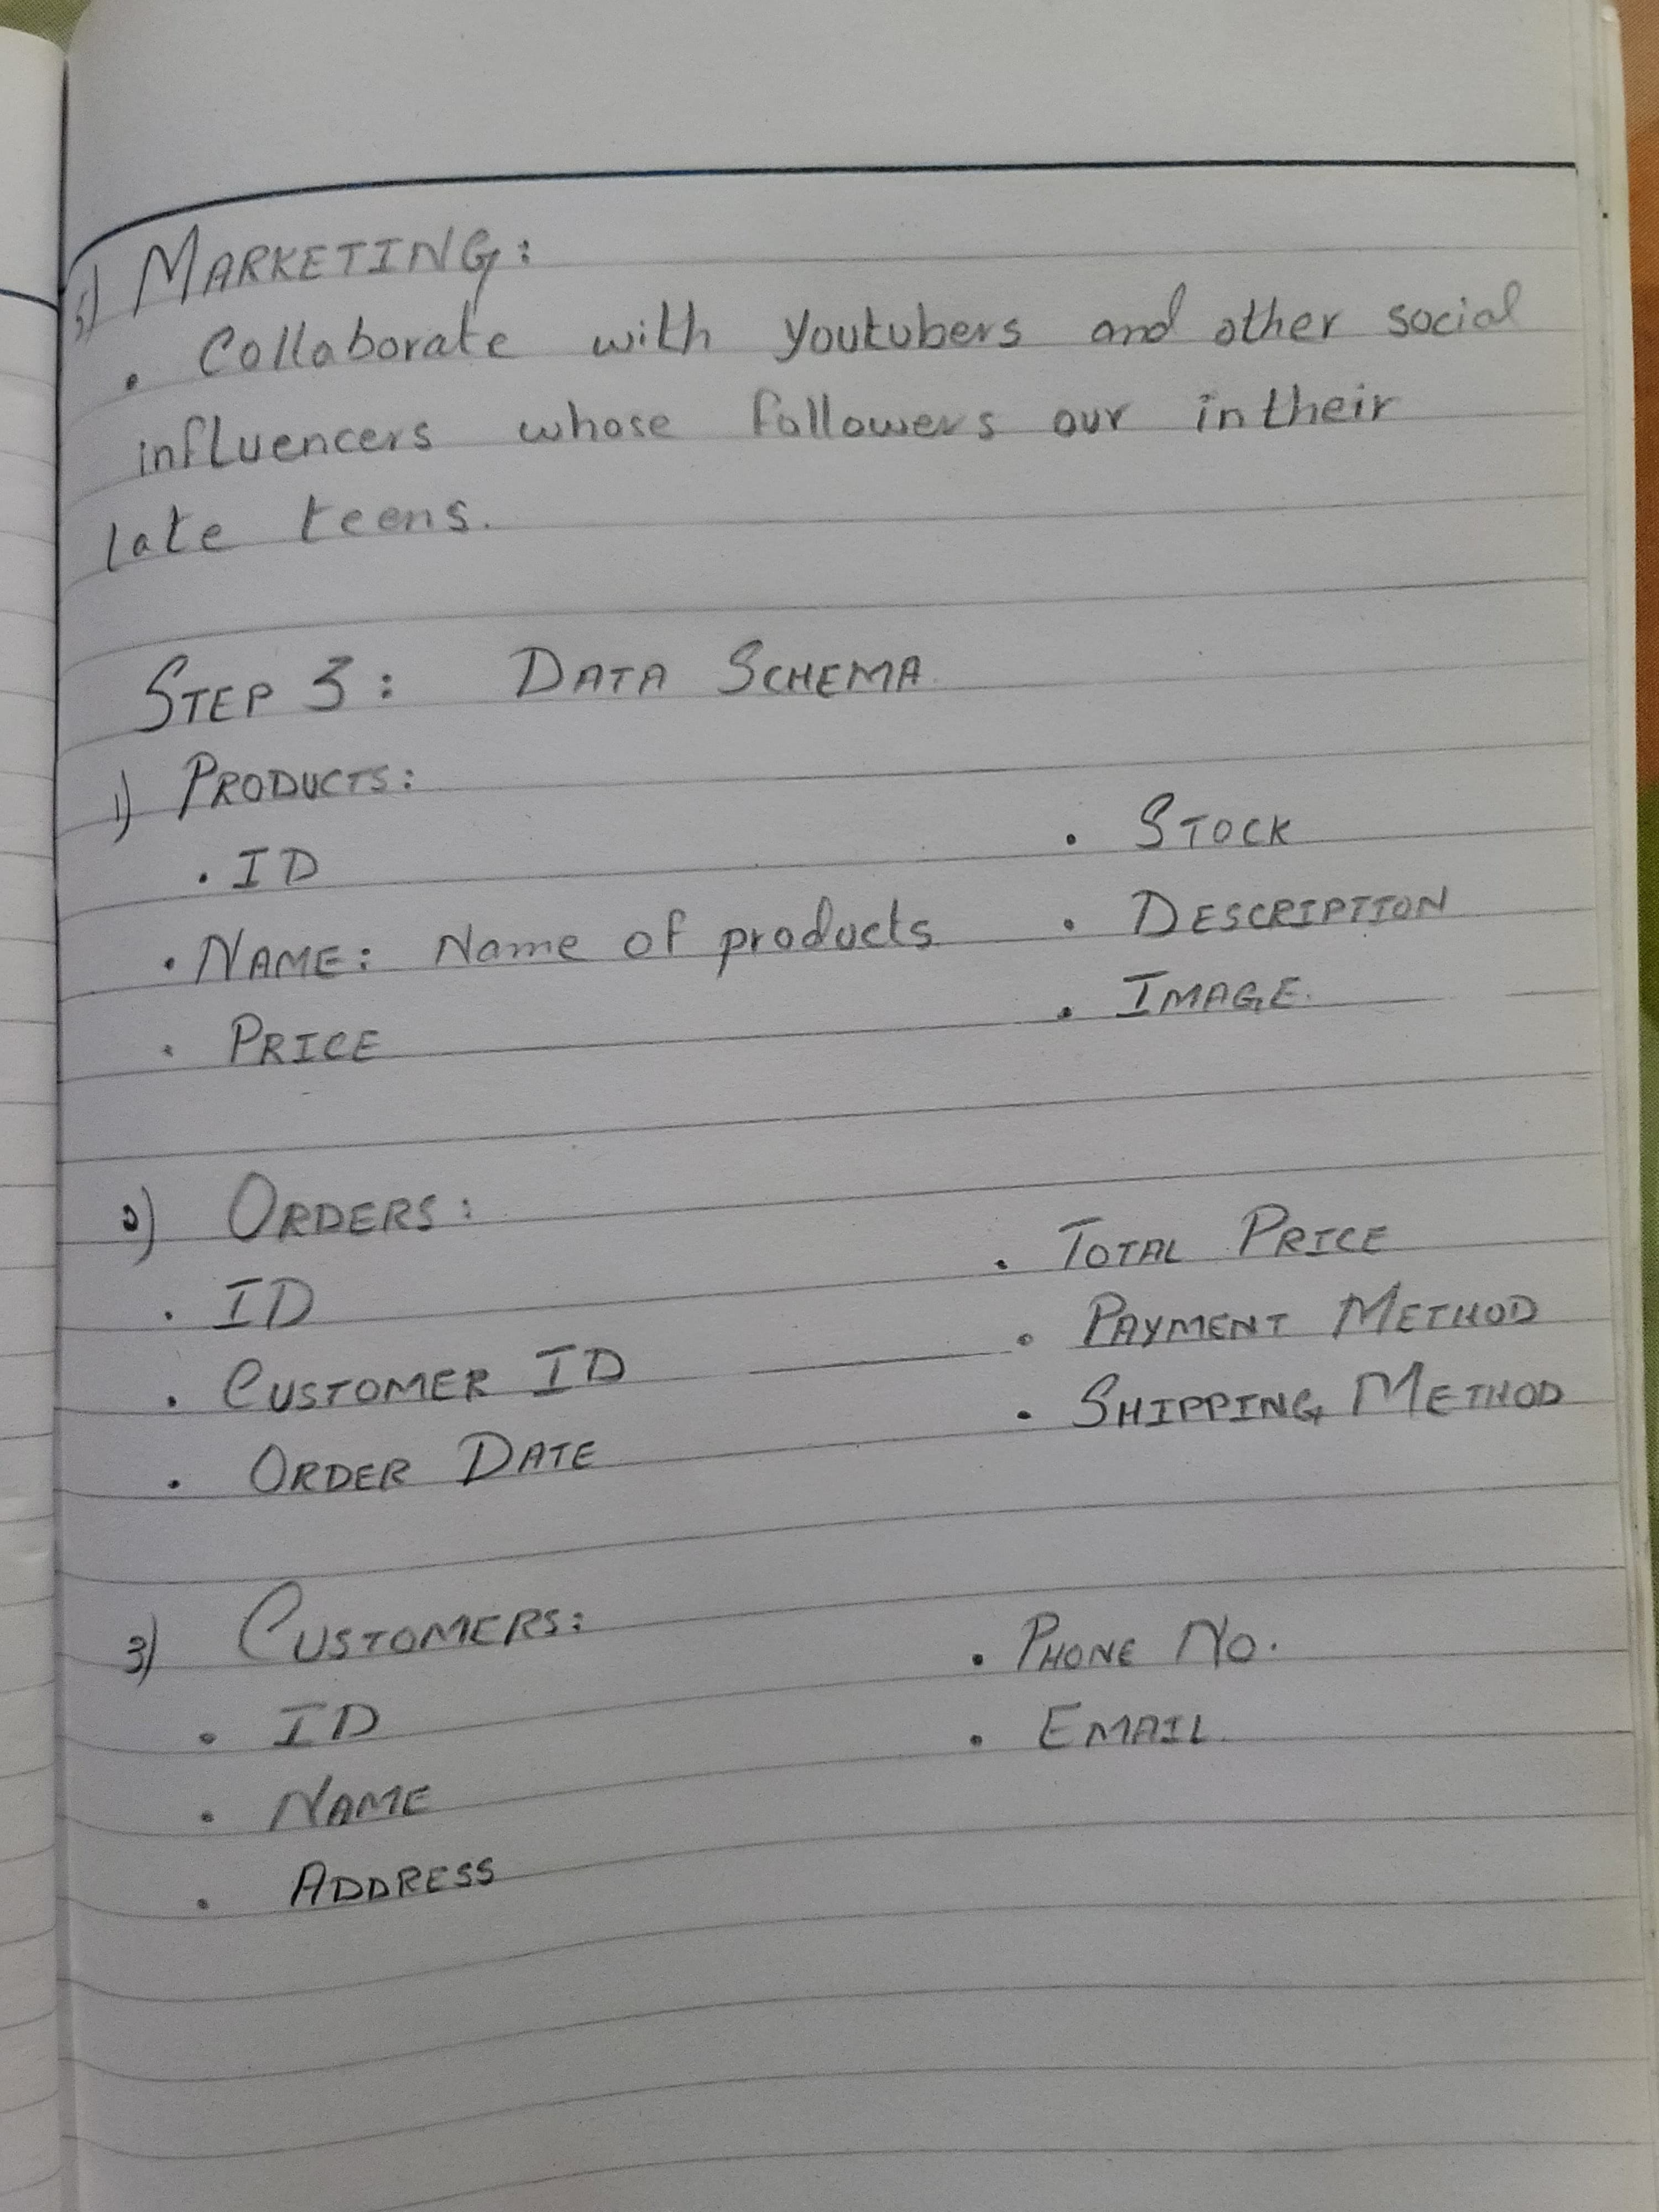 5) MARKETING:
• Collaborate with Youtubers and other social
influencers whose followers our in their
late teens.
STEP 3: DATA SCHEMA
1) PRODUCTS:
• ID
• NAME: Name of products
• PRICE
• STOCK
• DESCRIPTION
• IMAGE.
2) ORDERS:
• ID
• CUSTOMER ID
• ORDER DATE
• TOTAL PRICE
• PAYMENT METHOD
• SHIPPING METHOD
3) CUSTOMERS:
• ID
• NAME
• ADDRESS
• PHONE NO.
• EMAIL.